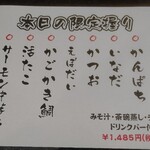 本日の限定握り
かんぱち
いなだ
かつお
えぼだい
かごかき鯛
活たこ
サーモン
みそ汁・茶碗蒸し・
ドリンバー付
￥1,485円(税